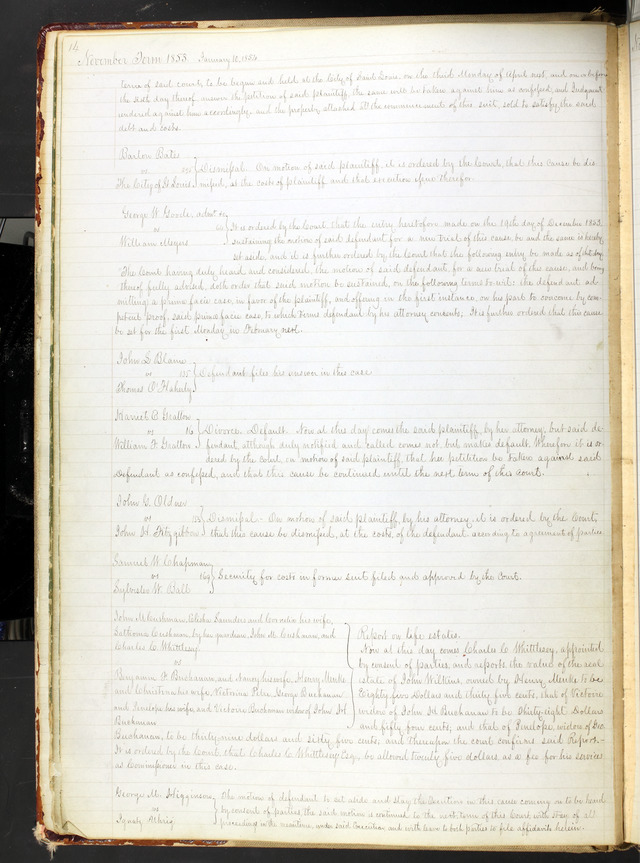 14
November Term 1853 January 10, 1854
term of said county, to be begun and held at the City of Saint Louis, on the third Monday of April next, and on or before
the sixth day thereof, answer the petition of said plaintiff, the same will be taken against him as confessed, and Judgment
rendered against him accordingly, and the property attached at the commencement of this suit, sold to satisfy the said
debt and costs.
Barton Bates
vs Dismissal. On motion of said plaintiff, it is ordered by the Court, that this cause be dis-
The City of St Louis missed, at the costs of plaintiff and that execution issue therefor.
George W. Goode, admr &c
vs It is ordered by the Court that the entry heretofore made on the 19th day of December 1853,
William Meyers sustaining the motion of said defendant for a new trial of this cause, be and the same is hereby
set aside, and it is further ordered by the Court that the following entry be made as of that day,
The Court having duly heard and considered, the motion of said defendant, for a new trial of this cause, and being
thereof fully advised, doth order that said motion be sustained, on the following terms to wit: the defendant ad-
mitting a prima facie case, in favor of the plaintiff, and offering in the first instance, on his part to overcome by com-
petent proof, said prima facie case, to which terms defendant by his attorney consents. It is further ordered that this cause
be set for the first Monday in February next.
John S. Blain
vs 135 Defendant files his answer in this case
Thomas O'Flaherty
Harriet C. Grattow
vs 16 Divorce. Default. Now at this day comes the said plaintiff, by her attorney, but said de-
William F. Grattow fendant, although duly notified and called comes not, but makes default, Wherefore it is or-
dered by the court, on motion of said plaintiff, that her petition be taken against said
Defendant as confessed, and that this cause be continued until the next term of this court.
John C. Oldner
vs Dismissal - On motion of said plaintiff, by his attorney, it is ordered by the Court,
John H. Fitzgibbon that this cause be dismissed, at the costs, of the defendant according to agreement of parties.
Samuel W. Chapman
vs 169 Security for costs in former suit filed, and approved by the Court.
Sylvester W. Ball
John M. Cushman, Elisha Saunders and his wife,
Cushman, by her guardian, John M. Cushman, and
Charles C. Whittlesey
vs
Benjamin F. Buchanan, and Nancy his wife, Henry Menke
and Christina his wife, George Buchanan
and Penelope his wife, and Victoire Buchanan widow of John H.
Buchanan
Report on life estates.
Now at this day comes Charles C. Whittlesey, appointed
by consent of parties, and reports the value of the real
estate of John Wilkins, owned by Henry Menke to be
Eighty five Dollars and thirty five cents, that of Victoire
widow of John H. Buchanan to be thirty-eight Dollars
and fifty four cents; and that of Penelope, widow of Geo
Buchanan, to be thirty-nine dollars and sixty five cents; and thereupon the court confirms said Report.-
It is ordered by the Court that Charles C. Whittlesey Esq., be allowed twenty five dollars, as a fee for his services
as Commissioner in this case.
George M. Higginson The motion of defendant to set aside and stay the Execution in this cause coming on to be heard
vs by consent of parties, the said motion is continued to the next term of this Court, with stay of all
Ignatz Uhrig proceedings in the meantime, under said Execution, and with leave to both parties to file affidavits herein.